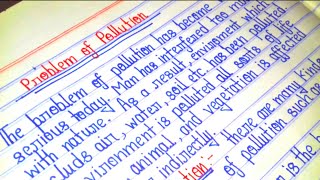 Problem of Pollution
The problem of pollution has become
serious today. Man has interfered too mu
with nature. As a result, environment which
cludes air, water, soil etc. has been polluted
nvironment is polluted all sorts of life
animal, and vegetation is affected
or indirectly.
there are many kind
of pollution such as
is the